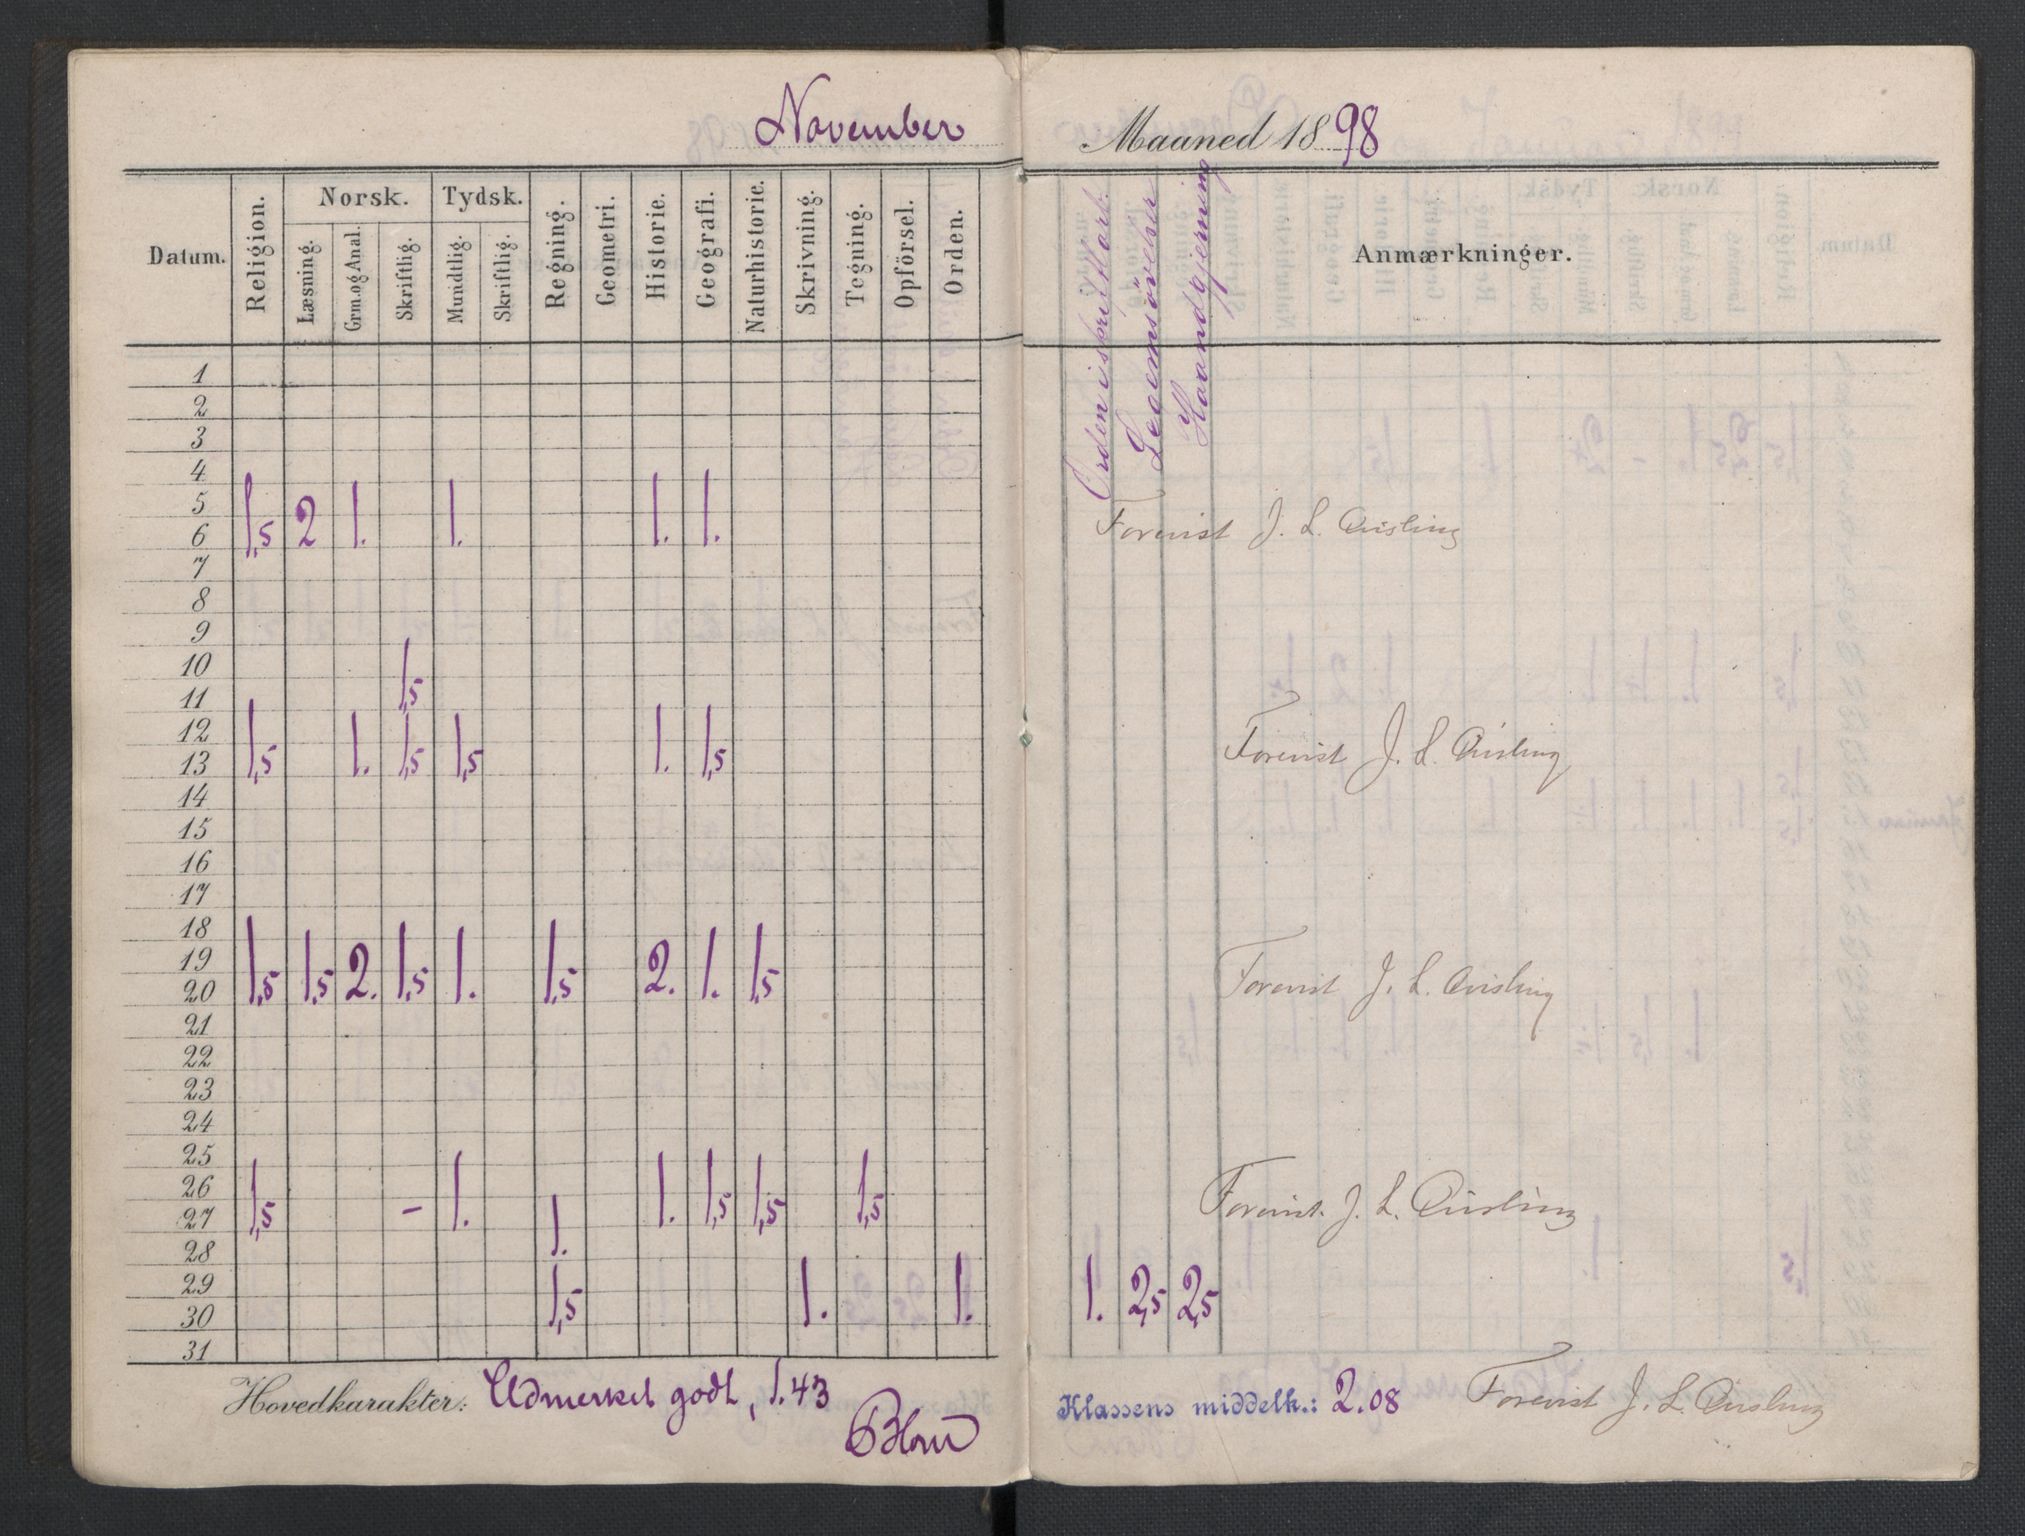 November Maaned 1898
Datum. Religion. Norsk. Tydsk. Regning. Geometri. Historie. Geografi. Naturhistorie. Skrivning. Tegning. Opförsel. Orden. Orden i skriftlart. Legemsövelser Haandgjerning Anmærkninger.
Læsning. Grm. og Anal. Skriftlig. Mundtlig. Skriftlig.
1
2
3
4
5
6 1,5 2 1. 1. 1. 1. Forevist J. L. Qvisling
7
8
9
10
11 1,5
12
13 1,5 1. 1,5 1,5 1. 1,5 Forevist J. L. Qvisling
14
15
16
17
18
19
20 1,5 1,5 2. 1,5 1. 1,5 2. 1. 1,5 Forevist J. L. Qvisling
21
22
23
24
25
26
27 1,5 - 1. 1. 1. 1,5 1,5 1,5 Forevist. J. L. Qvisling
28
29
30 1,5 1. 1. 1. 2,5 2,5
31
Hovedkarakter: Udmerket godt, 1.43 Klassens middelk.: 2.08 Forevist J. L. Qvisling
Blom